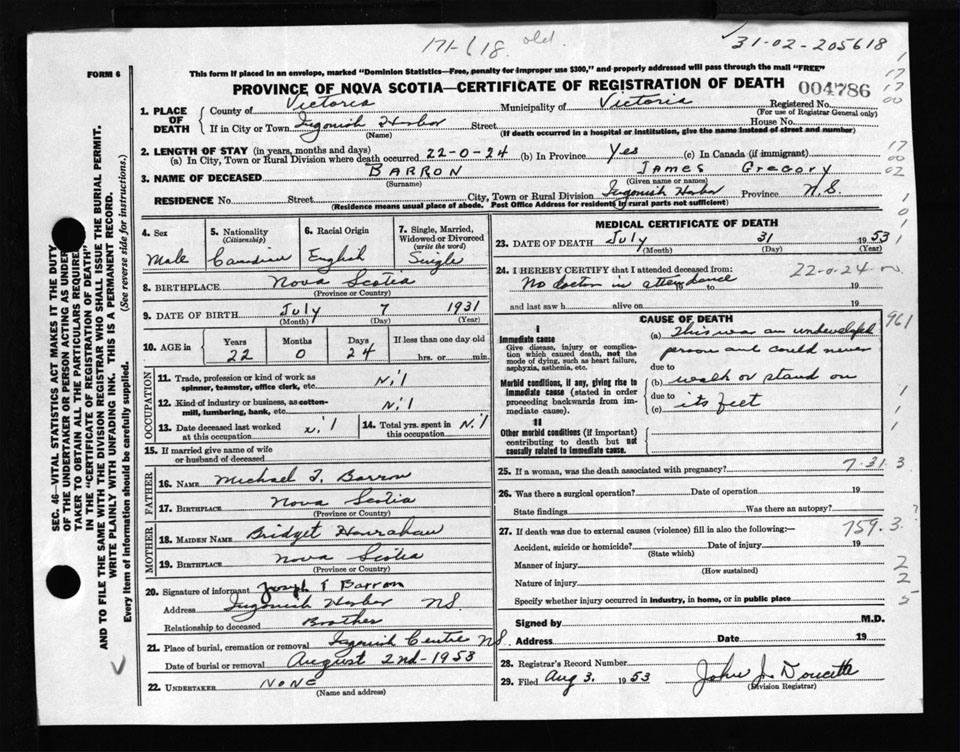 171-618. old.
31-02-205618
FORM 6
This form if placed in an envelope, marked "Dominion Statistics—Free, penalty for improper use $300," and properly addressed will pass through the mail "FREE"
PROVINCE OF NOVA SCOTIA—CERTIFICATE OF REGISTRATION OF DEATH 004786
1. PLACE OF DEATH
County of Victoria Municipality of Victoria Registered No.
(For use of Registrar General only)
If in City or Town Ingonish Harbor Street House No.
(Name) (If death occurred in a hospital or institution, give the name instead of street and number)
2. LENGTH OF STAY (in years, months and days)
(a) In City, Town or Rural Division where death occurred 22-0-24 (b) In Province Yes (c) In Canada (if immigrant)
3. NAME OF DECEASED BARRON James Gregory
(Surname) (Given name or names)
RESIDENCE No. Street City, Town or Rural Division Ingonish Harbor Province N.S.
(Residence means usual place of abode. Post Office Address for residents in rural parts not sufficient)
4. Sex Male
5. Nationality (Citizenship) Canadian
6. Racial Origin English
7. Single, Married, Widowed or Divorced (write the word) Single
8. BIRTHPLACE Nova Scotia
(Province or Country)
9. DATE OF BIRTH July 7 1931
(Month) (Day) (Year)
10. AGE in Years Months Days If less than one day old
22 0 24 hrs. or min.
OCCUPATION
11. Trade, profession or kind of work as spinner, teamster, office clerk, etc. Nil
12. Kind of industry or business, as cotton-mill, lumbering, bank, etc. Nil
13. Date deceased last worked at this occupation Nil
14. Total yrs. spent in this occupation Nil
15. If married give name of wife or husband of deceased
FATHER
16. NAME Michael T. Barron
17. BIRTHPLACE Nova Scotia
(Province or Country)
MOTHER
18. MAIDEN NAME Bridget Hawrahan
19. BIRTHPLACE Nova Scotia
(Province or Country)
20. Signature of informant Joseph T Barron
Address Ingonish Harbor NS.
Relationship to deceased Brother
21. Place of burial, cremation or removal Ingonish Centre NS.
Date of burial or removal August 2nd-1953
22. UNDERTAKER NONE
(Name and address)
MEDICAL CERTIFICATE OF DEATH
23. DATE OF DEATH July 31 1953
(Month) (Day) (Year)
24. I HEREBY CERTIFY that I attended deceased from: 22-0-24
No doctor in attendance 19 to 19
and last saw h alive on 19
CAUSE OF DEATH
I
Immediate cause
Give disease, injury or complication which caused death, not the mode of dying, such as heart failure, asphyxia, asthenia, etc.
(a) This was an undeveloped
person and could never
due to
Morbid conditions, if any, giving rise to immediate cause (stated in order proceeding backwards from immediate cause).
(b) walk or stand on
due to
(c) its feet
II
Other morbid conditions (if important) contributing to death but not causally related to immediate cause.
961
25. If a woman, was the death associated with pregnancy? 7-31.3
26. Was there a surgical operation? Date of operation 19
State findings Was there an autopsy?
27. If death was due to external causes (violence) fill in also the following:— 759.3
Accident, suicide or homicide? Date of injury 19
(State which)
Manner of injury
(How sustained)
Nature of injury
Specify whether injury occurred in industry, in home, or in public place
Signed by M.D.
Address Date 19
28. Registrar's Record Number
29. Filed Aug 3. 1953 John J. Doucette
(Division Registrar)
SEC. 46—VITAL STATISTICS ACT MAKES IT THE DUTY
OF THE UNDERTAKER OR PERSON ACTING AS UNDERTAKER TO OBTAIN ALL THE PARTICULARS REQUIRED
IN THE "CERTIFICATE OF REGISTRATION OF DEATH"
AND TO FILE THE SAME WITH THE DIVISION REGISTRAR WHO SHALL ISSUE THE BURIAL PERMIT.
WRITE PLAINLY WITH UNFADING INK. THIS IS A PERMANENT RECORD.
Every item of information should be carefully supplied. (See reverse side for instructions.)